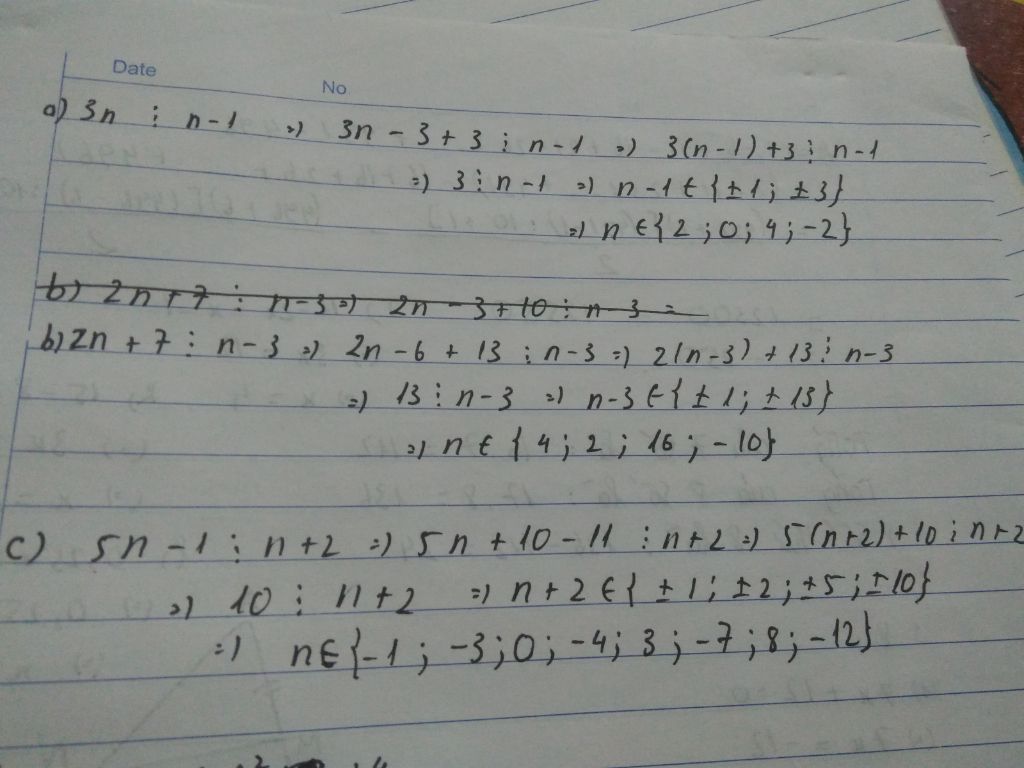 Date
No
a) 3n ⋮ n-1 => 3n - 3 + 3 ⋮ n-1 => 3(n-1)+3 ⋮ n-1
=> 3 ⋮ n-1 => n-1 ∈ {±1; ±3}
=> n ∈ {2; 0; 4; -2}
b) 2n + 7 ⋮ n-3 => 2n - 3 + 10 ⋮ n-3 =
b) 2n + 7 ⋮ n-3 => 2n - 6 + 13 ⋮ n-3 => 2(n-3) + 13 ⋮ n-3
=> 13 ⋮ n-3 => n-3 ∈ {±1; ±13}
=> n ∈ {4; 2; 16; -10}
c) 5n - 1 ⋮ n+2 => 5n + 10 - 11 ⋮ n+2 => 5(n+2)+10 ⋮ n+2
=> 10 ⋮ n+2 => n+2 ∈ {±1; ±2; ±5; ±10}
=> n ∈ {-1; -3; 0; -4; 3; -7; 8; -12}